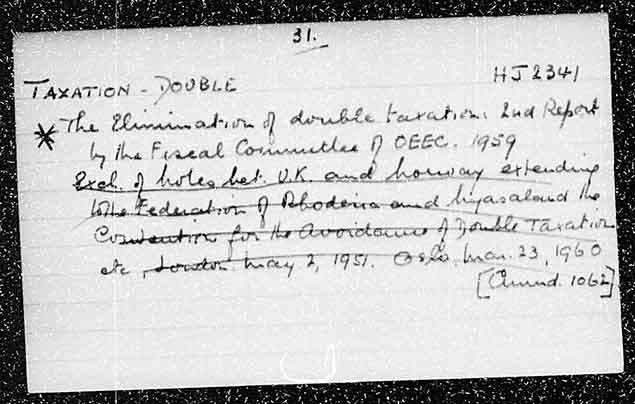 31.
TAXATION - DOUBLE HJ2341
* The Elimination of double taxation. 2nd Report
by the Fiscal Committee of OEEC. 1959
Exch. of Notes bet. U.K. and Norway extending
to the Federation of Rhodesia and Nyasaland the
Convention for the Avoidance of Double Taxation
etc, London May 2, 1951. Oslo, Mar. 23, 1960
[Cmnd. 1062]